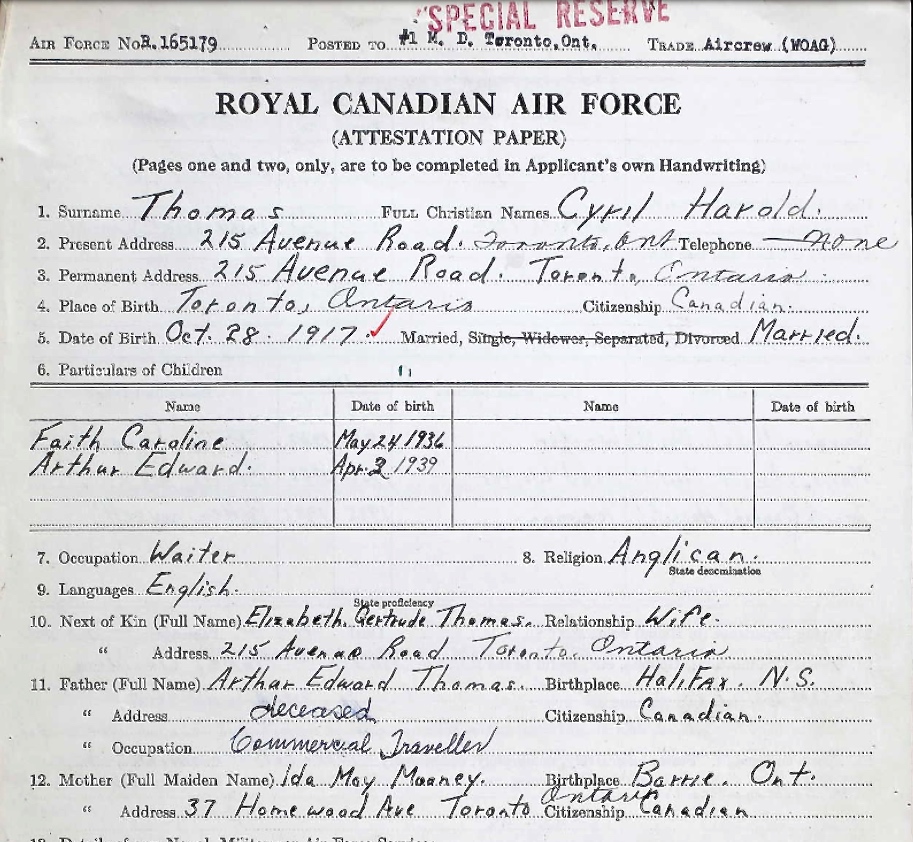 SPECIAL RESERVE
AIR FORCE No. R.165179 POSTED TO #1 M. D. Toronto, Ont. TRADE Aircrew (WOAG)
ROYAL CANADIAN AIR FORCE
(ATTESTATION PAPER)
(Pages one and two, only, are to be completed in Applicant's own Handwriting)
1. Surname Thomas FULL Christian Names Cyril Harold.
2. Present Address 215 Avenue Road. Toronto, Ont Telephone — none
3. Permanent Address 215 Avenue Road. Toronto, Ontario
4. Place of Birth Toronto, Ontario Citizenship Canadian.
5. Date of Birth Oct. 28. 1917. Married, Single, Widower, Separated, Divorced Married.
6. Particulars of Children
Name Date of birth Name Date of birth
Faith Caroline May 24 1936
Arthur Edward. Apr. 2 1939
7. Occupation Waiter 8. Religion Anglican.
State denomination
9. Languages English.
State proficiency
10. Next of Kin (Full Name) Elizabeth. Gertrude Thomas. Relationship Wife.
" Address 215 Avenue Road Toronto. Ontario
11. Father (Full Name) Arthur Edward Thomas. Birthplace Halifax. N.S.
" Address deceased Citizenship Canadian.
" Occupation Commercial Traveller
12. Mother (Full Maiden Name) Ida May Mooney. Birthplace Barrie. Ont.
" Address 37 Homewood Ave Toronto Ontario Citizenship Canadian